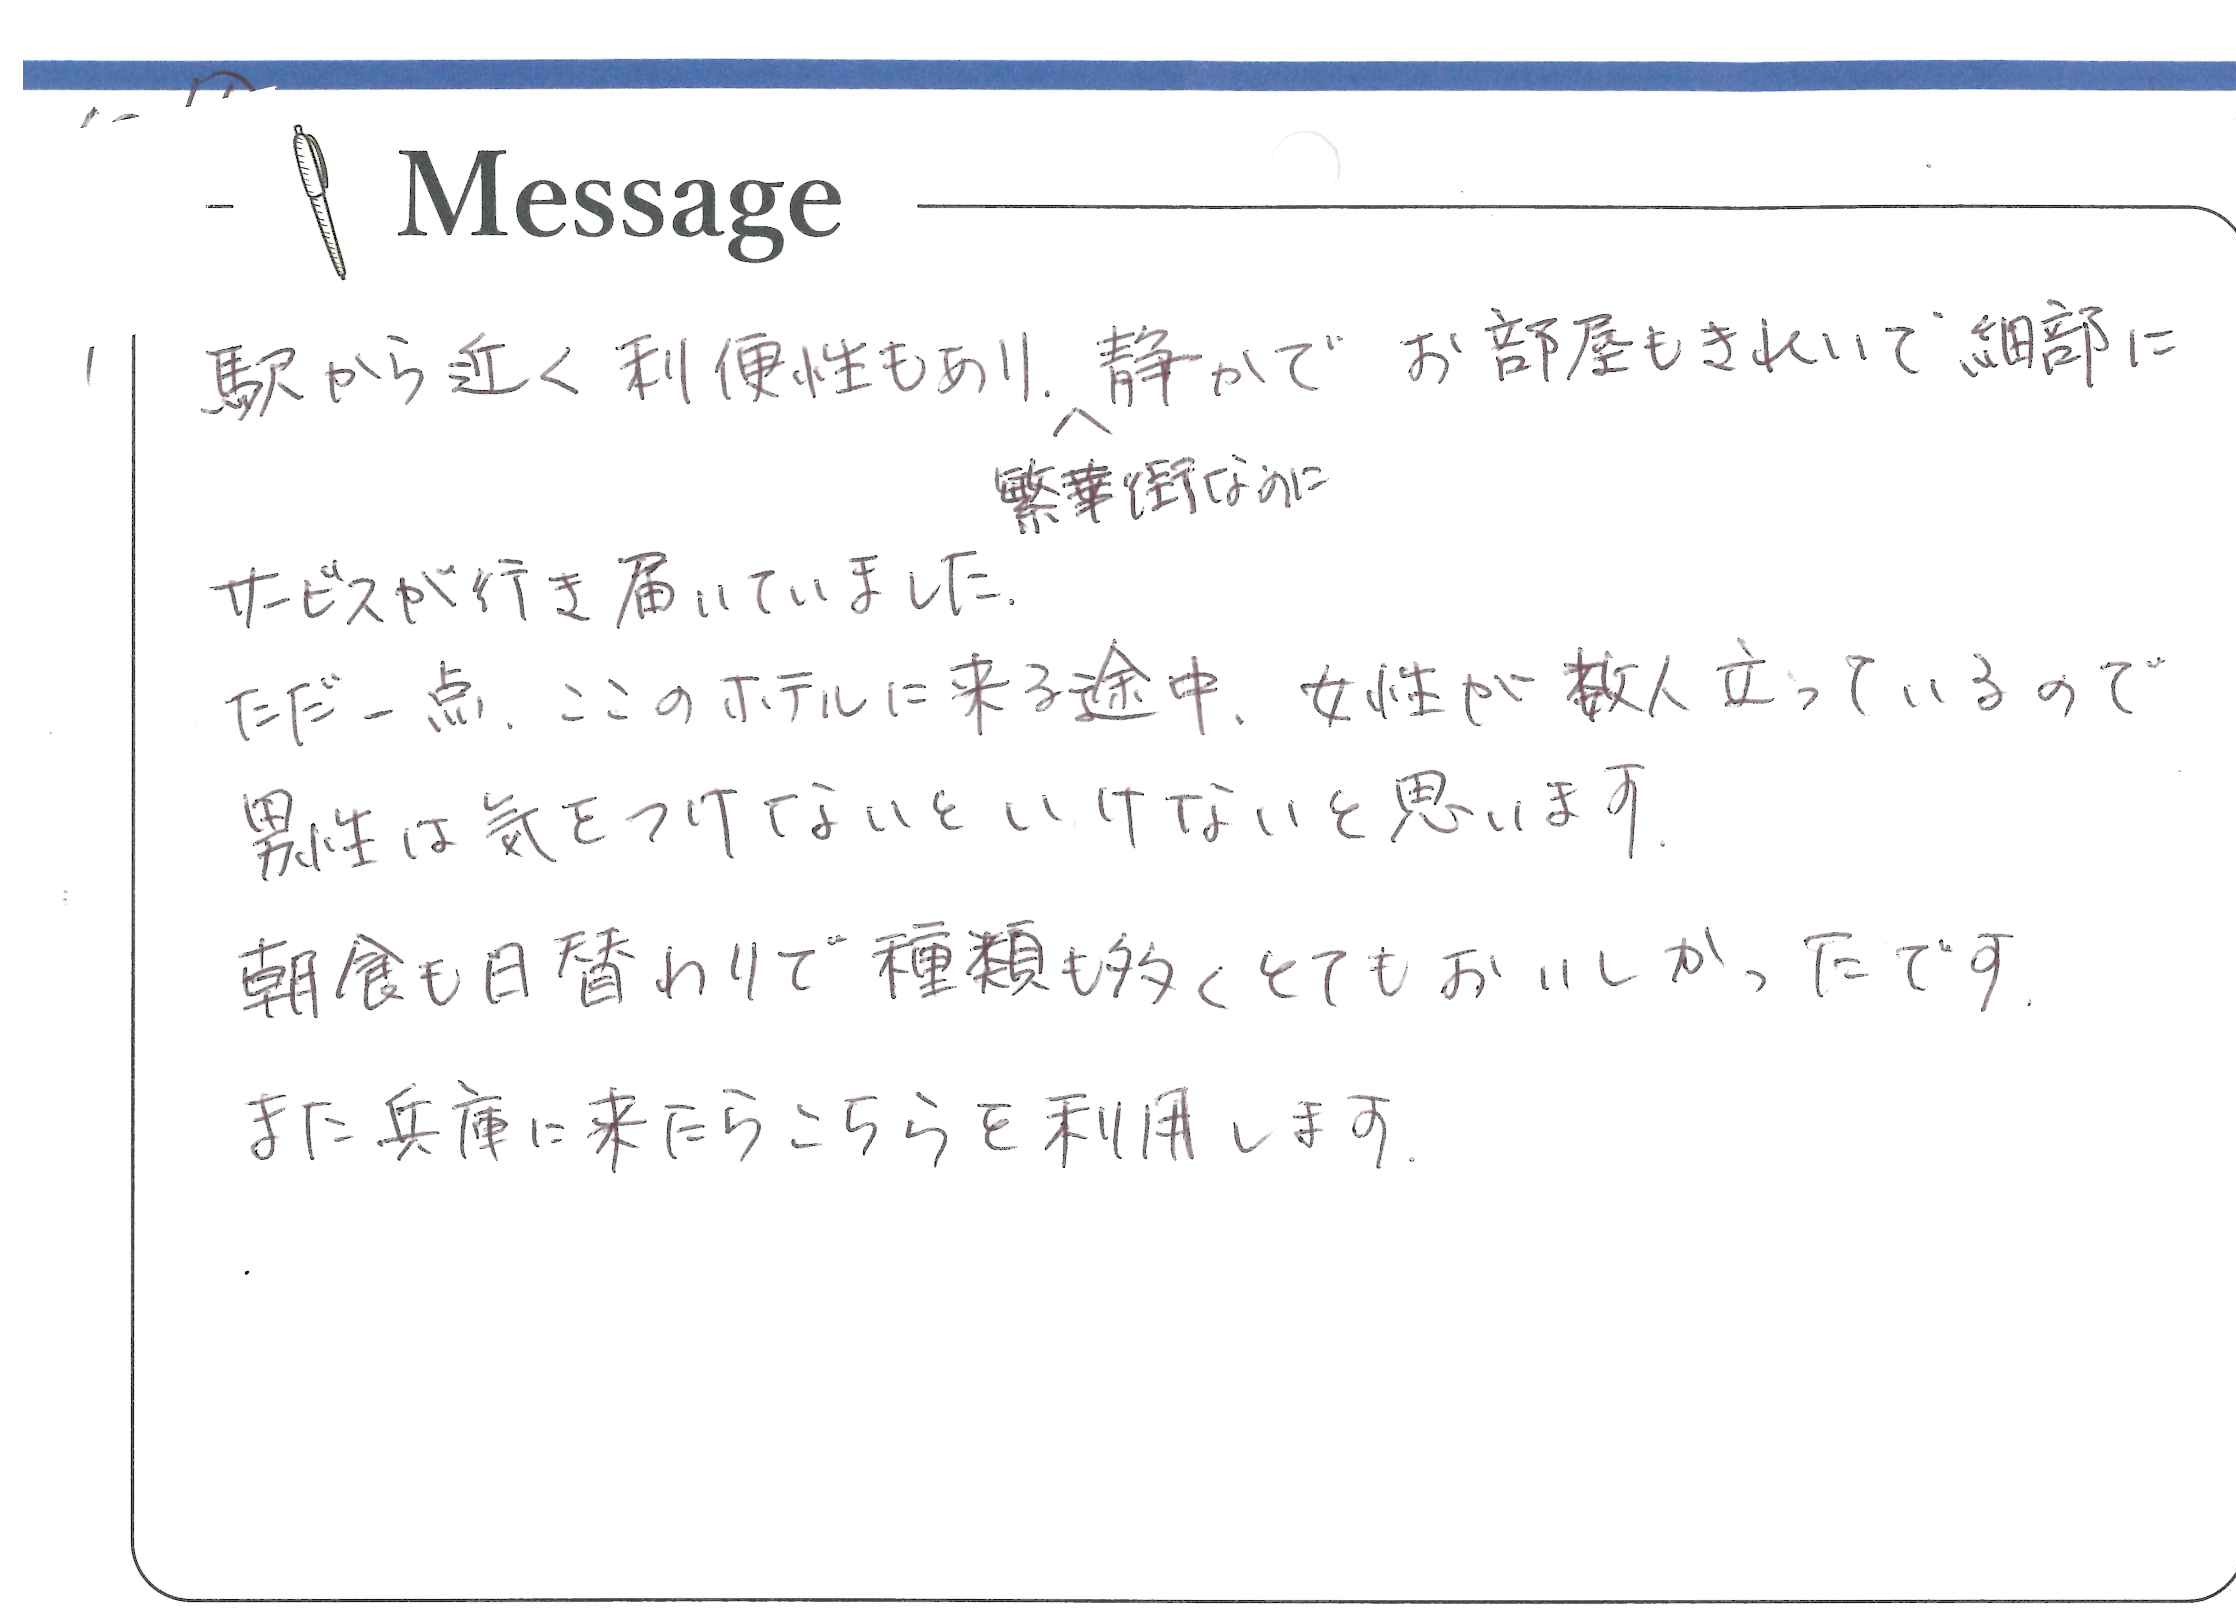 Message
駅から近く利便性もあり、静かで お部屋もきれいで細部に
繁華街なのに
サービスが行き届いていました。
ただ一点、ここのホテルに来る途中、女性が数人立っているので
男性は気をつけてないといけないと思います。
朝食も日替わりで種類も多くとてもおいしかったです。
また兵庫に来たらこちらを利用します。